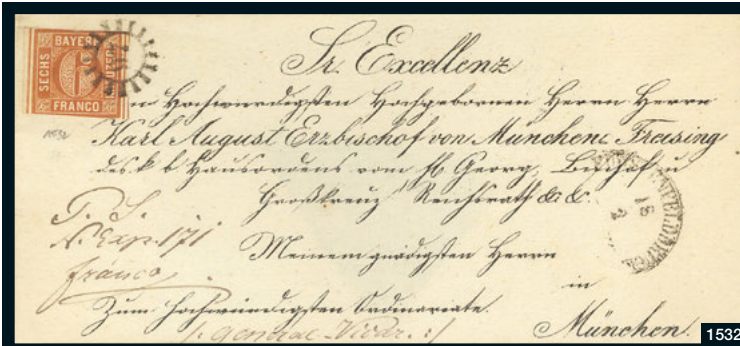 BAYERN
SECHS
6
FRANCO
Sr. Excellenz
Hochwürdigsten Hochgebornen Herrn Herrn
Karl August Erzbischof von München Freising
des k b Hausordens vom hl Georg, Bischof u
Großkreuz Reichsrath &c &c
Meinem gnädigsten Herrn
in
Zum hochwürdigsten Ordinariate.
München.
N. Exp. 171
franco
18
2
1532